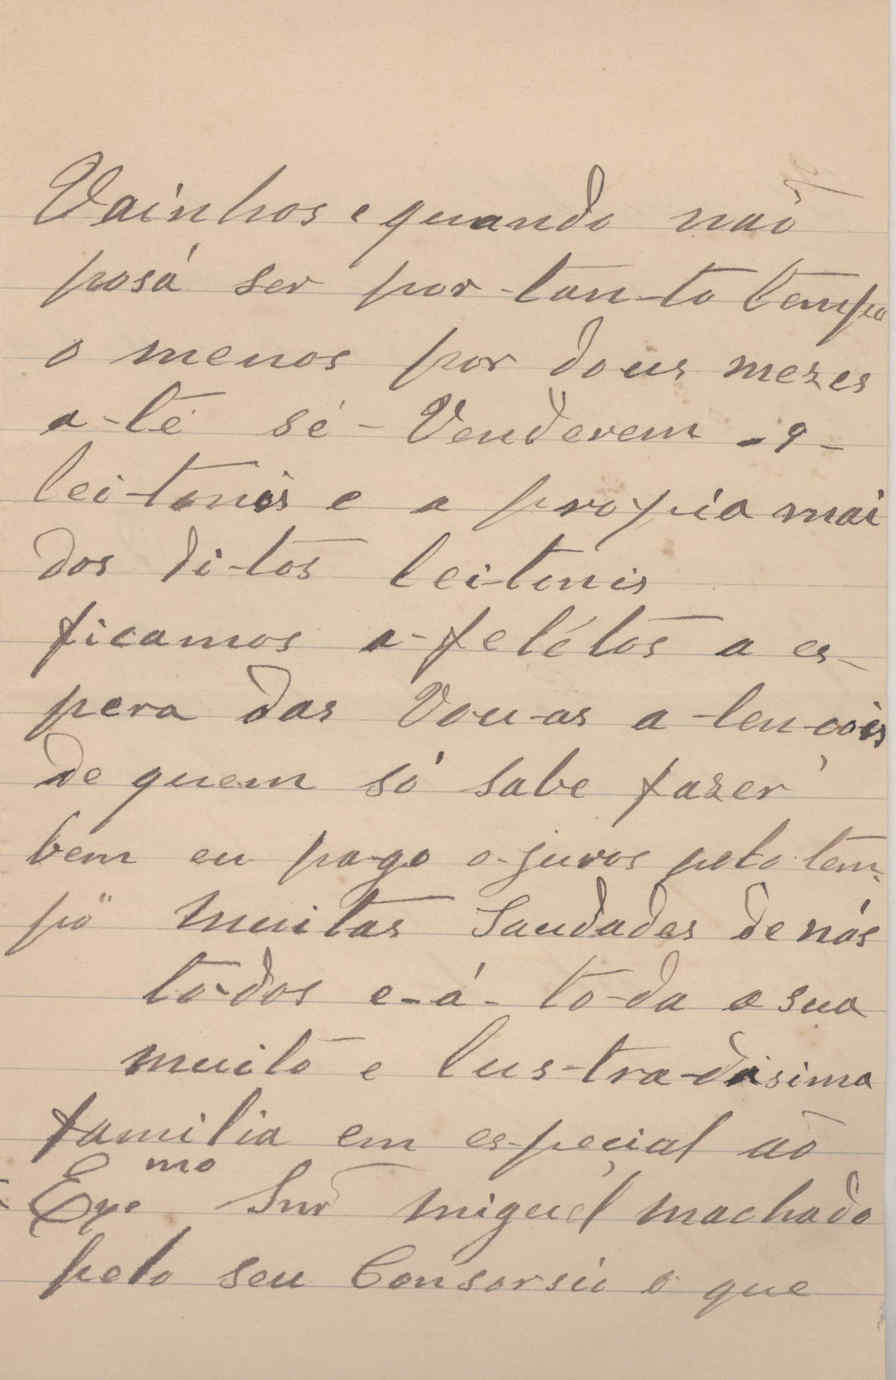 Vainhos e quando não
posá ser por tan-to tempo
o menos por dous mezes
a-té sé - Venderem - 9 -
lei-tonis e a propia mai
dos di-tos lei-tonis
ficamos a-felétos a es-
pera das Vou-as a-tencois
de quem só sabe fazer
bem eu pa-go o-juros pelo tem-
po muitas Saudades de nós
to-dos e-á- to-da a sua
muito e lus-tra-disima
familia em es-pecial ao
Exmo Snr miguel machado
pelo seu Consorsio o que